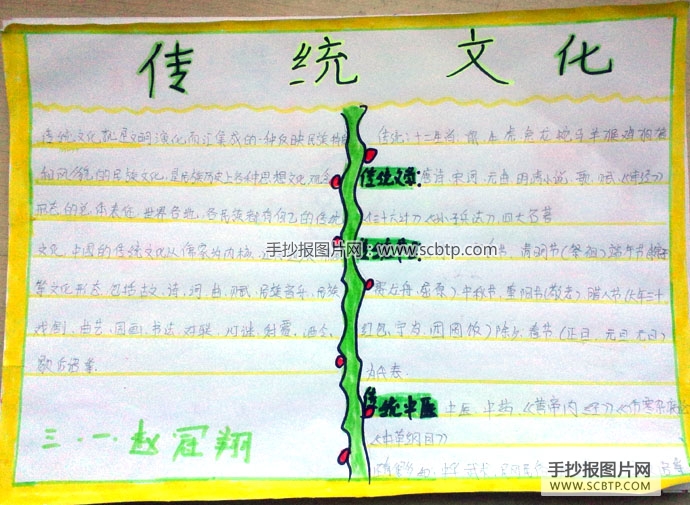 传统文化
传统文化就是文明演化而汇集成的一种反映民族特质
和风貌的民族文化,是民族历史上各种思想文化、观念
形态的总体表征。世界各地,各民族都有自己的传统
文化。中国的传统文化以儒家为内核,
等文化形态,包括古文、诗、词、曲、赋、民族音乐、民族
戏剧、曲艺、国画、书法、对联、灯谜、射覆、酒令、
歇后语等。
三·一·赵冠翔
传统:十二生肖:鼠 牛 虎 兔 龙 蛇 马 羊 猴 鸡 狗 猪
传统文学:唐诗 宋词、元曲 明清小说、歌、赋、《诗经》
《三十六计》《孙子兵法》、四大名著
清明节(祭祖)端午节
赛龙舟、屈原)中秋节、重阳节(敬老)腊八节(
团圆饭)除夕、春节(正旦、元旦
传统中医 中医、中药、《黄帝内经》《伤寒杂病
《本草纲目》
手抄报图片网 www.scbtp.com
手抄报图片网
WWW.SCBTP.COM